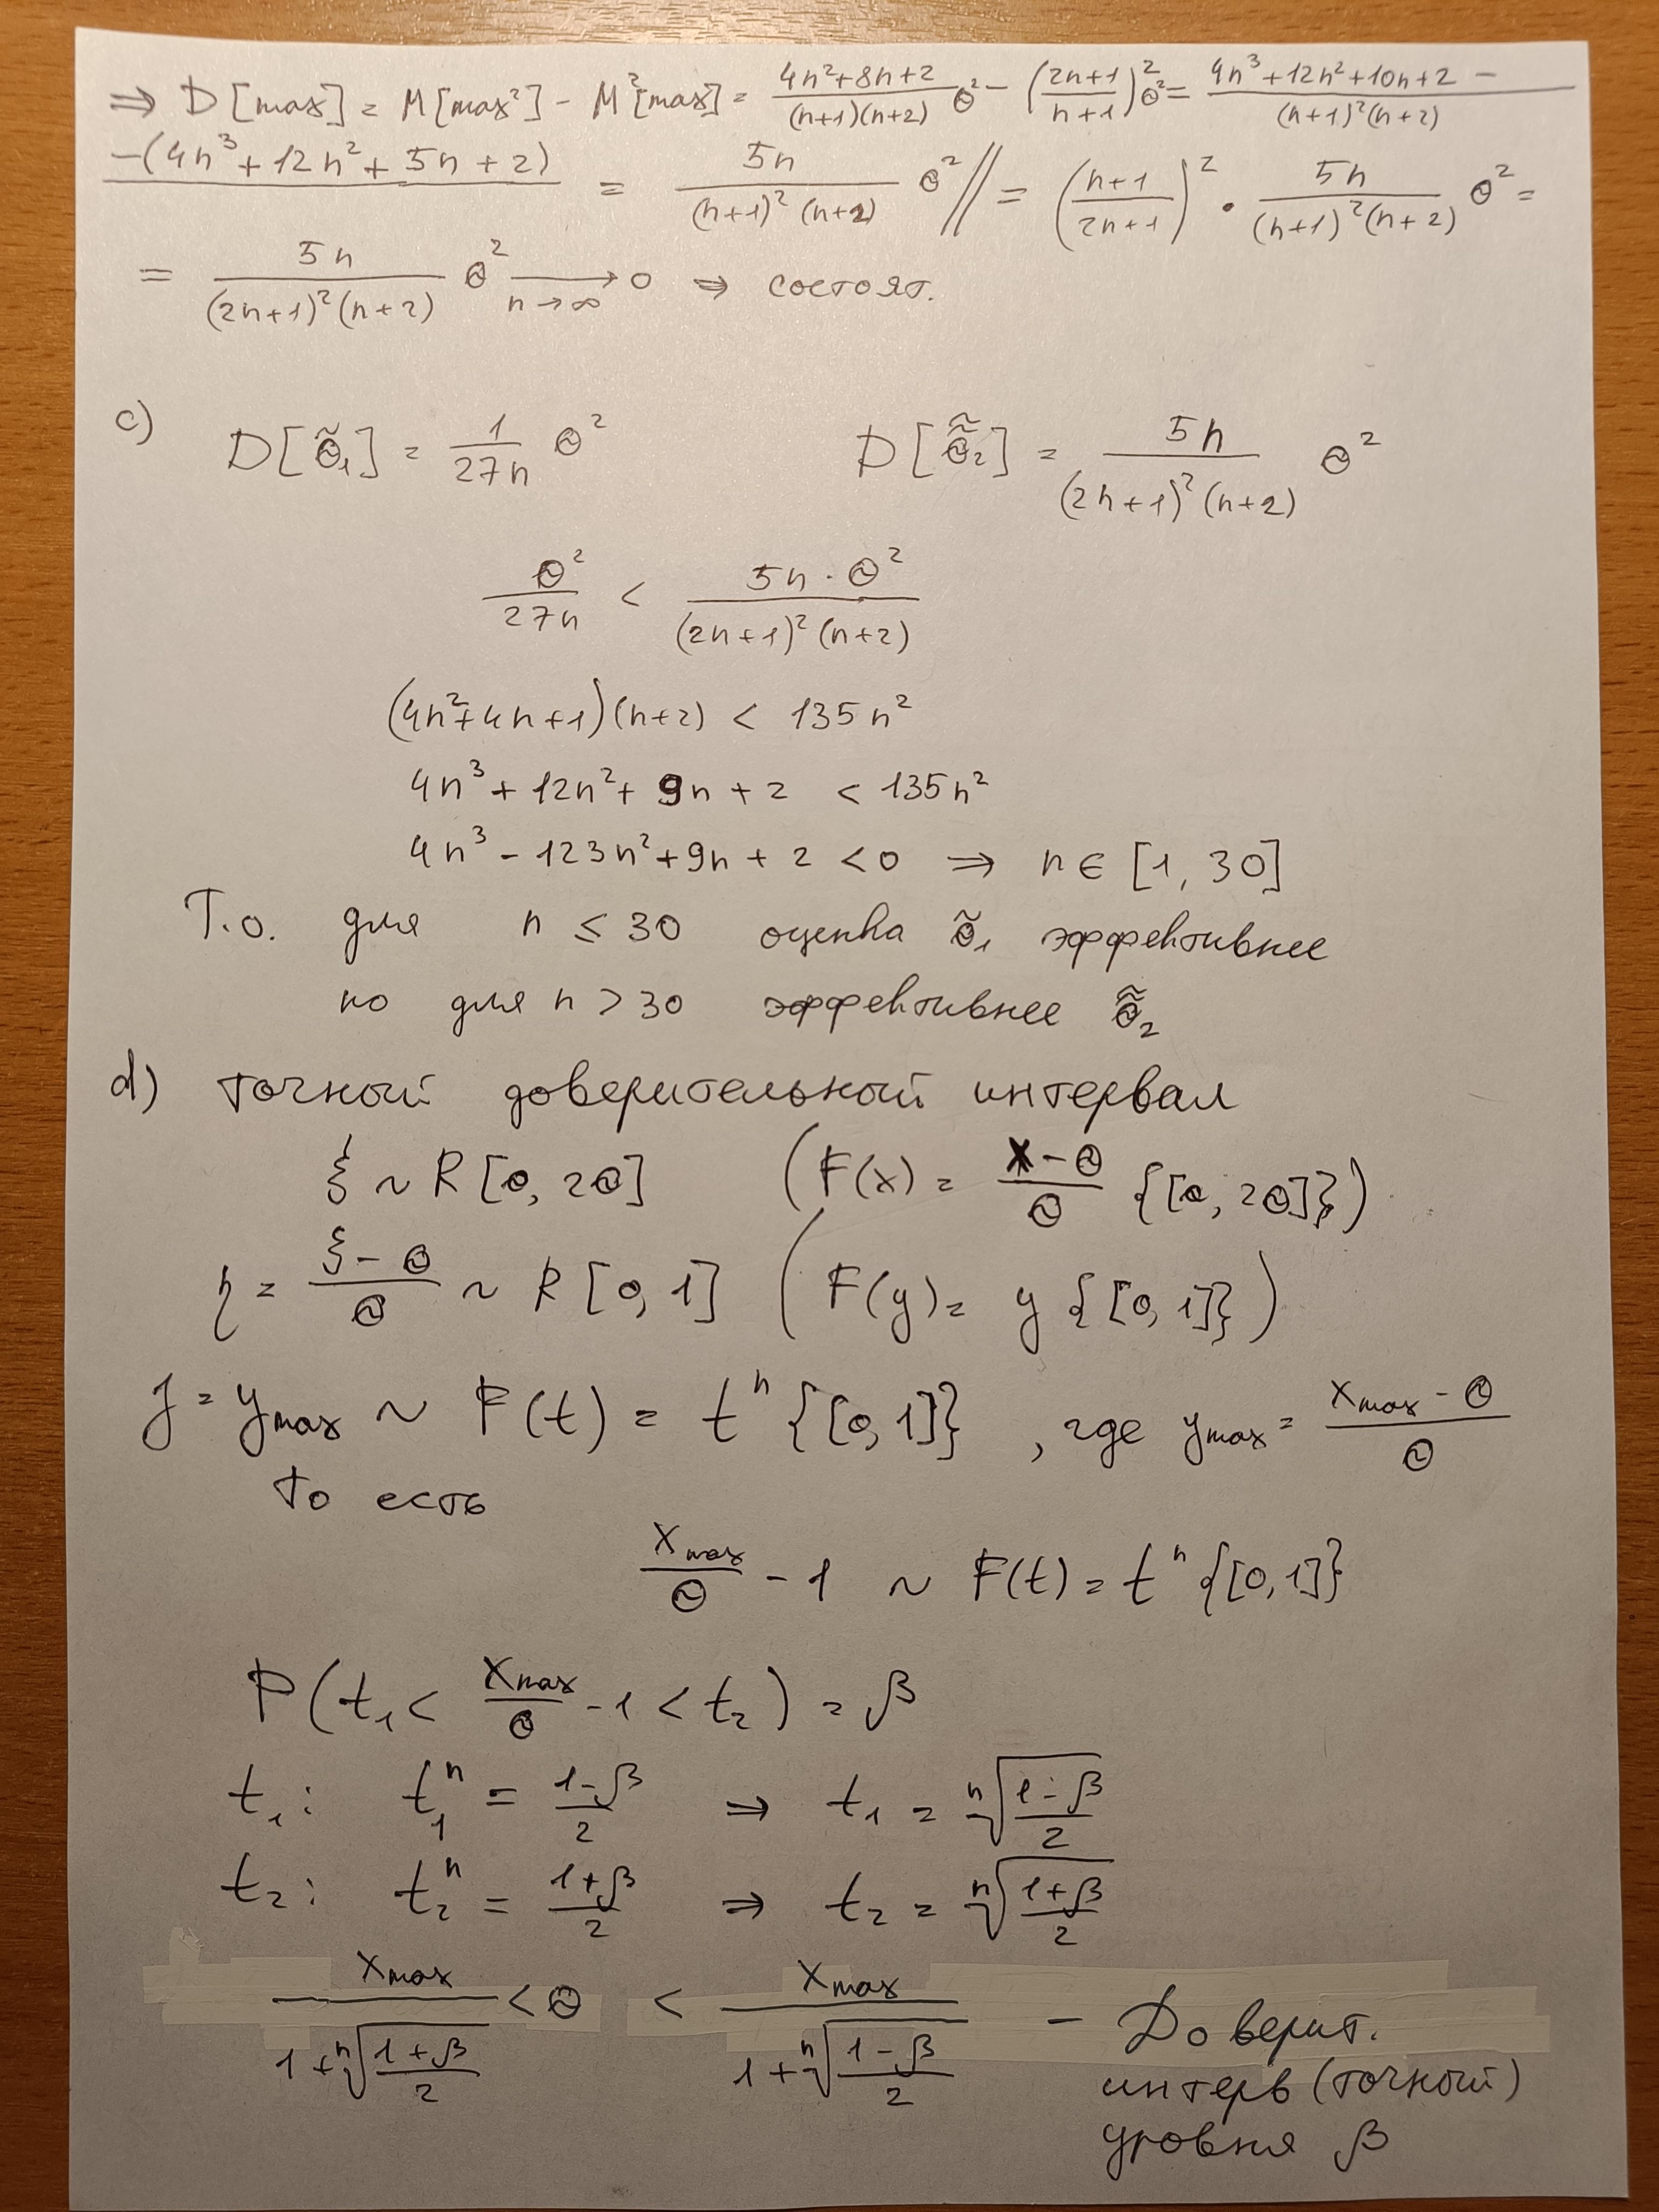 ⇒ D[max] = M[max²] - M²[max] = (4n²+8n+2)/((n+1)(n+2)) θ² - ((2n+1)/(n+1))² θ² = (4n³+12n²+10n+2 -)/((n+1)²(n+2))
-(4n³+12n²+5n+2) = 5n/((n+1)²(n+2)) θ² // = ((n+1)/(2n+1))² · 5n/((n+1)²(n+2)) θ² =
= 5n/((2n+1)²(n+2)) θ² → 0 (n→∞) ⇒ состоят.
c) D[θ̃₁] = 1/(27n) θ² D[θ̃̃₂] = 5n/((2n+1)²(n+2)) θ²
θ²/(27n) < 5n·θ²/((2n+1)²(n+2))
(4n²+4n+1)(n+2) < 135n²
4n³+12n²+9n+2 < 135n²
4n³-123n²+9n+2 < 0 ⇒ n∈[1,30]
Т.о. для n ≤ 30 оценка θ̃₁ эффективнее
но для n > 30 эффективнее θ̃̃₂
d) точный доверительный интервал
ξ ~ R[θ, 2θ] (F(x) = (x-θ)/θ {[θ, 2θ]})
η = (ξ-θ)/θ ~ R[0,1] (F(y) = y{[0,1]})
J = y_max ~ F(t) = tⁿ{[0,1]}, где y_max = (x_max-θ)/θ
то есть
x_max/θ - 1 ~ F(t) = tⁿ{[0,1]}
P(t₁ < x_max/θ - 1 < t₂) = β
t₁: t₁ⁿ = (1-β)/2 ⇒ t₁ = ⁿ√((1-β)/2)
t₂: t₂ⁿ = (1+β)/2 ⇒ t₂ = ⁿ√((1+β)/2)
x_max/(1+ⁿ√((1+β)/2)) < θ < x_max/(1+ⁿ√((1-β)/2)) - Доверит.
интерв (точный)
уровня β